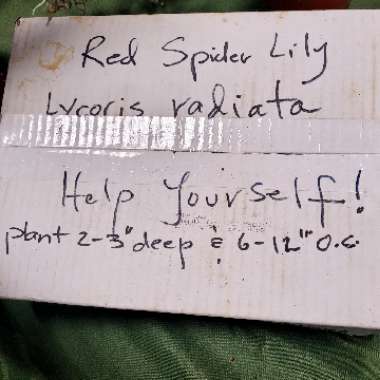 Red Spider Lily
Lycoris radiata
Help Yourself!
plant 2-3" deep & 6-12" o.c.